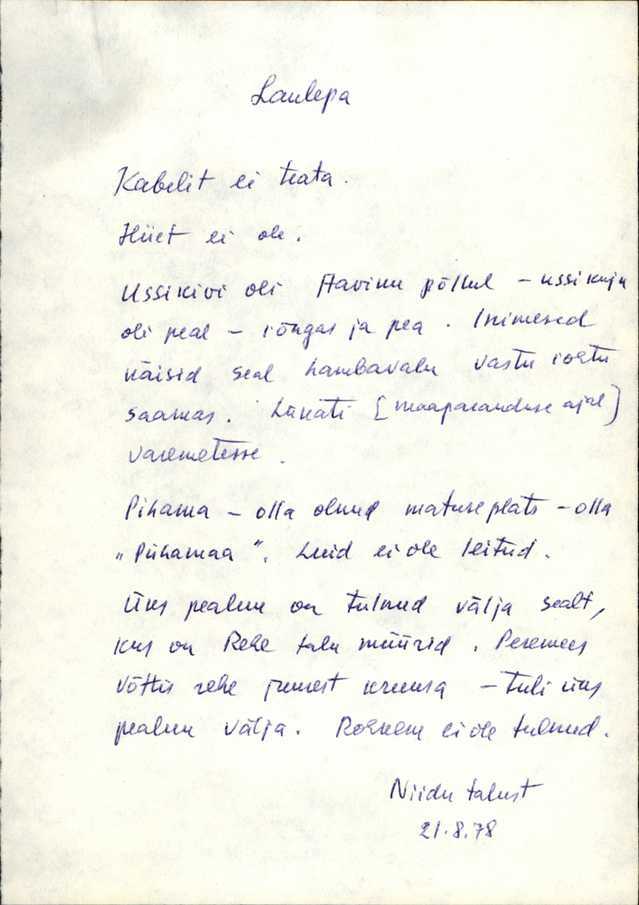 Laulepa
Kabelit ei teata.
Hiiet ei ole.
Ussikivi oli Aavinu põllul – ussikuju
oli peal – rõngas ja pea. Inimesed
käisid seal hambavalu vastu rohtu
saamas. Lükati [maaparanduse ajal]
varemetesse.
Pihama – olla olnud matuseplats – olla
„Pühamaa“. Luid ei ole leitud.
Üks pealuu on tulnud välja sealt,
kus on Rehe talu müürid. Peremees
võttis rehe juurest kruusa – tuli üks
pealuu välja. Rohkem ei ole tulnud.
Niidu talust
21.8.78